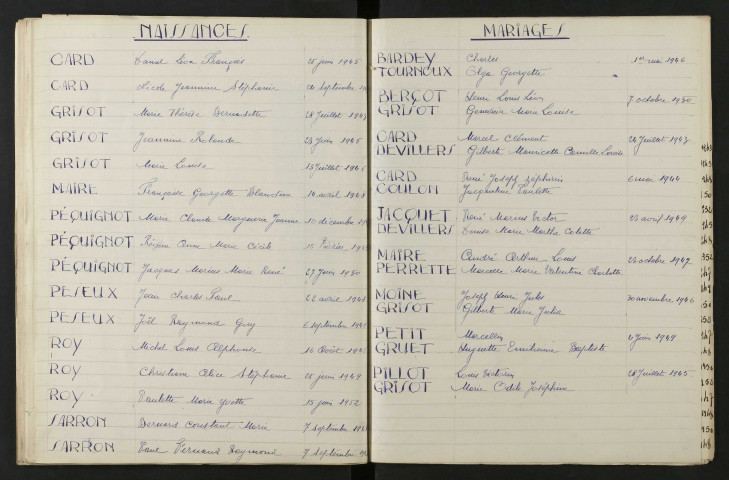 NAISSANCES
CARD Léon François 25 juin 1945
CARD Nicole Jeannine Stéphanie septembre
GRISOT Marie Thérèse Bernadette 28 juillet
GRISOT Jeannine Rolande 23 juin 1945
GRISOT Marie Louise 13 juillet 1946
MAIRE Françoise Georgette Blandine 14 avril
PÉQUIGNOT Marie Claude Marguerite Jeanne 10 décembre
PÉQUIGNOT Régine Anne Marie Cécile 15 février
PÉQUIGNOT Jacques Marius Marie René 27 juin 1950
PESEUX Jean Charles Paul 22 avril
PESEUX Joël Raymond Guy 6 septembre
ROY Michel Louis Alphonse 16 août
ROY Christiane Alice Stéphanie 28 juin 1949
ROY Paulette Marie Yvette 15 juin 1952
SARRON Bernard Constant Marie 7 septembre
SARRON Fernand Raymond 7 septembre
MARIAGES
BARDEY Charles 1er mai 1946
TOURNOUX Olga Georgette
BERÇOT Henri Louis Léon 7 octobre 1950
GRISOT Geneviève Marie Louise
CARD Marcel Clément 24 juillet 1943
DEVILLERS Gilberte Mauricette Camille Louise
CARD René Joseph Zéphirin 6 mai 1944
COULON Jacqueline Paulette
JACQUET René Marius Victor 23 avril 1949
DEVILLERS Denise Marie Marthe Colette
MAIRE André Arthur Louis 25 octobre 1947
PERRETTE Marcelle Marie Valentine Charlotte
MOINE Joseph Henri Jules 30 novembre 1946
GRISOT Gilberte Marie Julia
PETIT Marcellin juin 1949
GRUET Huguette Baptiste
PILLOT Louis Victorin 28 juillet 1945
GRISOT Marie Odile Joséphine